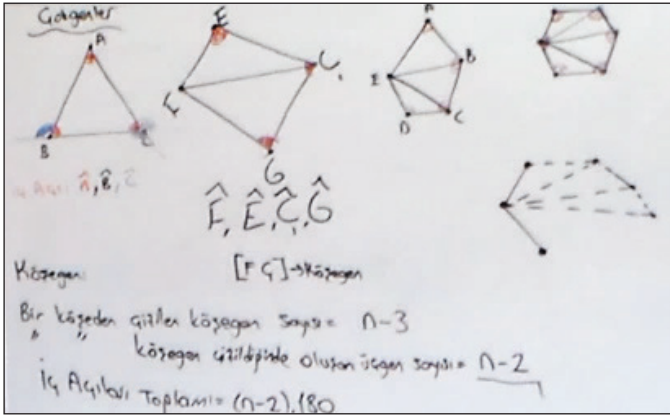 Çokgenler
A
B
C
İç Açı: Â, B̂, Ĉ
E
Ç
F
G
F̂, Ê, Ç̂, Ĝ
A
B
C
D
E
Köşegen:
[FÇ]→Köşegen
Bir köşeden çizilen köşegen sayısı = n-3
" " köşegen çizildiğinde oluşan üçgen sayısı = n-2
İç Açıları Toplamı = (n-2).180